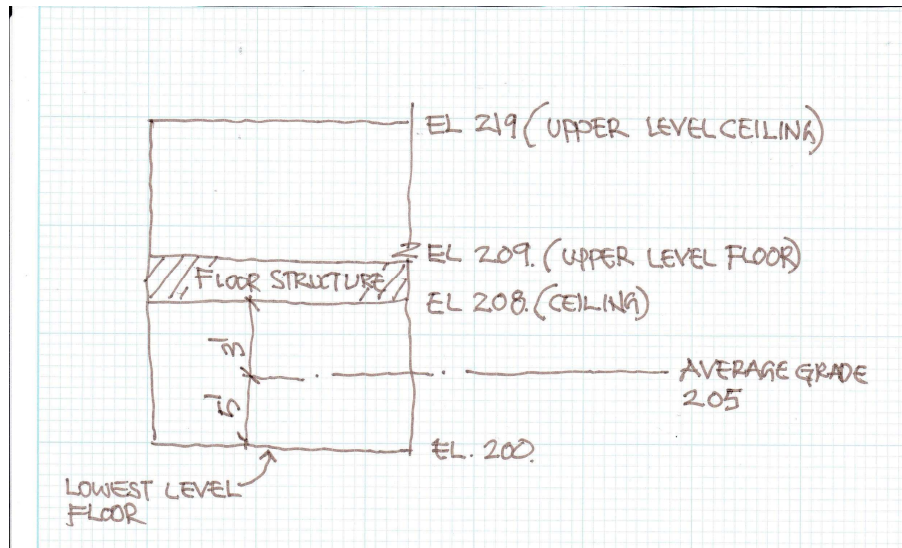 EL 219 (UPPER LEVEL CEILING)
EL 209. (UPPER LEVEL FLOOR)
FLOOR STRUCTURE
EL 208. (CEILING)
3'
AVERAGE GRADE
205
5'
EL. 200.
LOWEST LEVEL
FLOOR